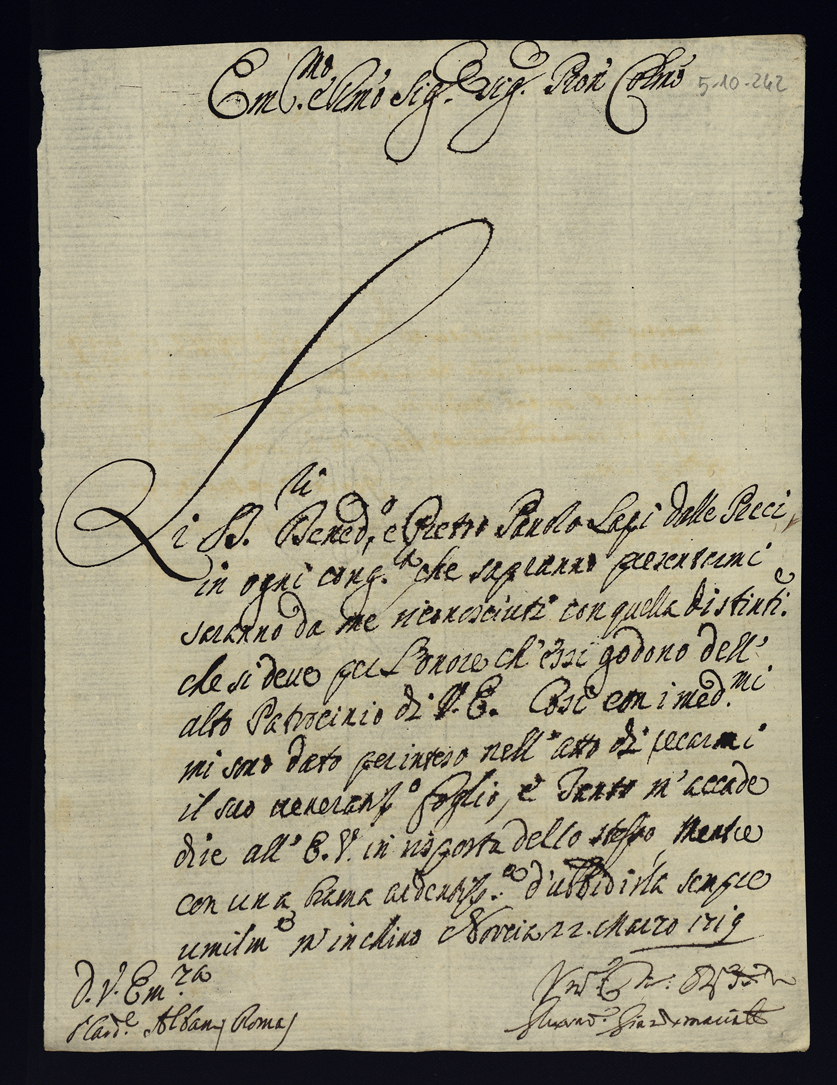 Em.mo e Rmo Sig.r Sig.r Pron Colmo
5-10-242
Li SS.ri Bened.o e Pietro Pauolo Lapi dalle Preci,
in ogni cong.ra che sapranno presentarmi
saranno da me riconosciuti con quella distinti.e
che si deue per l'onore ch'essi godono dell'
alto Patrocinio di V. E. Così con i med.mi
mi sono dato per inteso nell'atto di recarmi
il suo ueneratis.o foglio, e tanto m'accade
dire all'E. V. in risposta dello stesso, mentre
con una brama ardentis.a d'ubbidirla sempre
umilm.e m'inchino Norcia 22. Marzo 1719
D. V. Em.za
Card.e Albani Roma